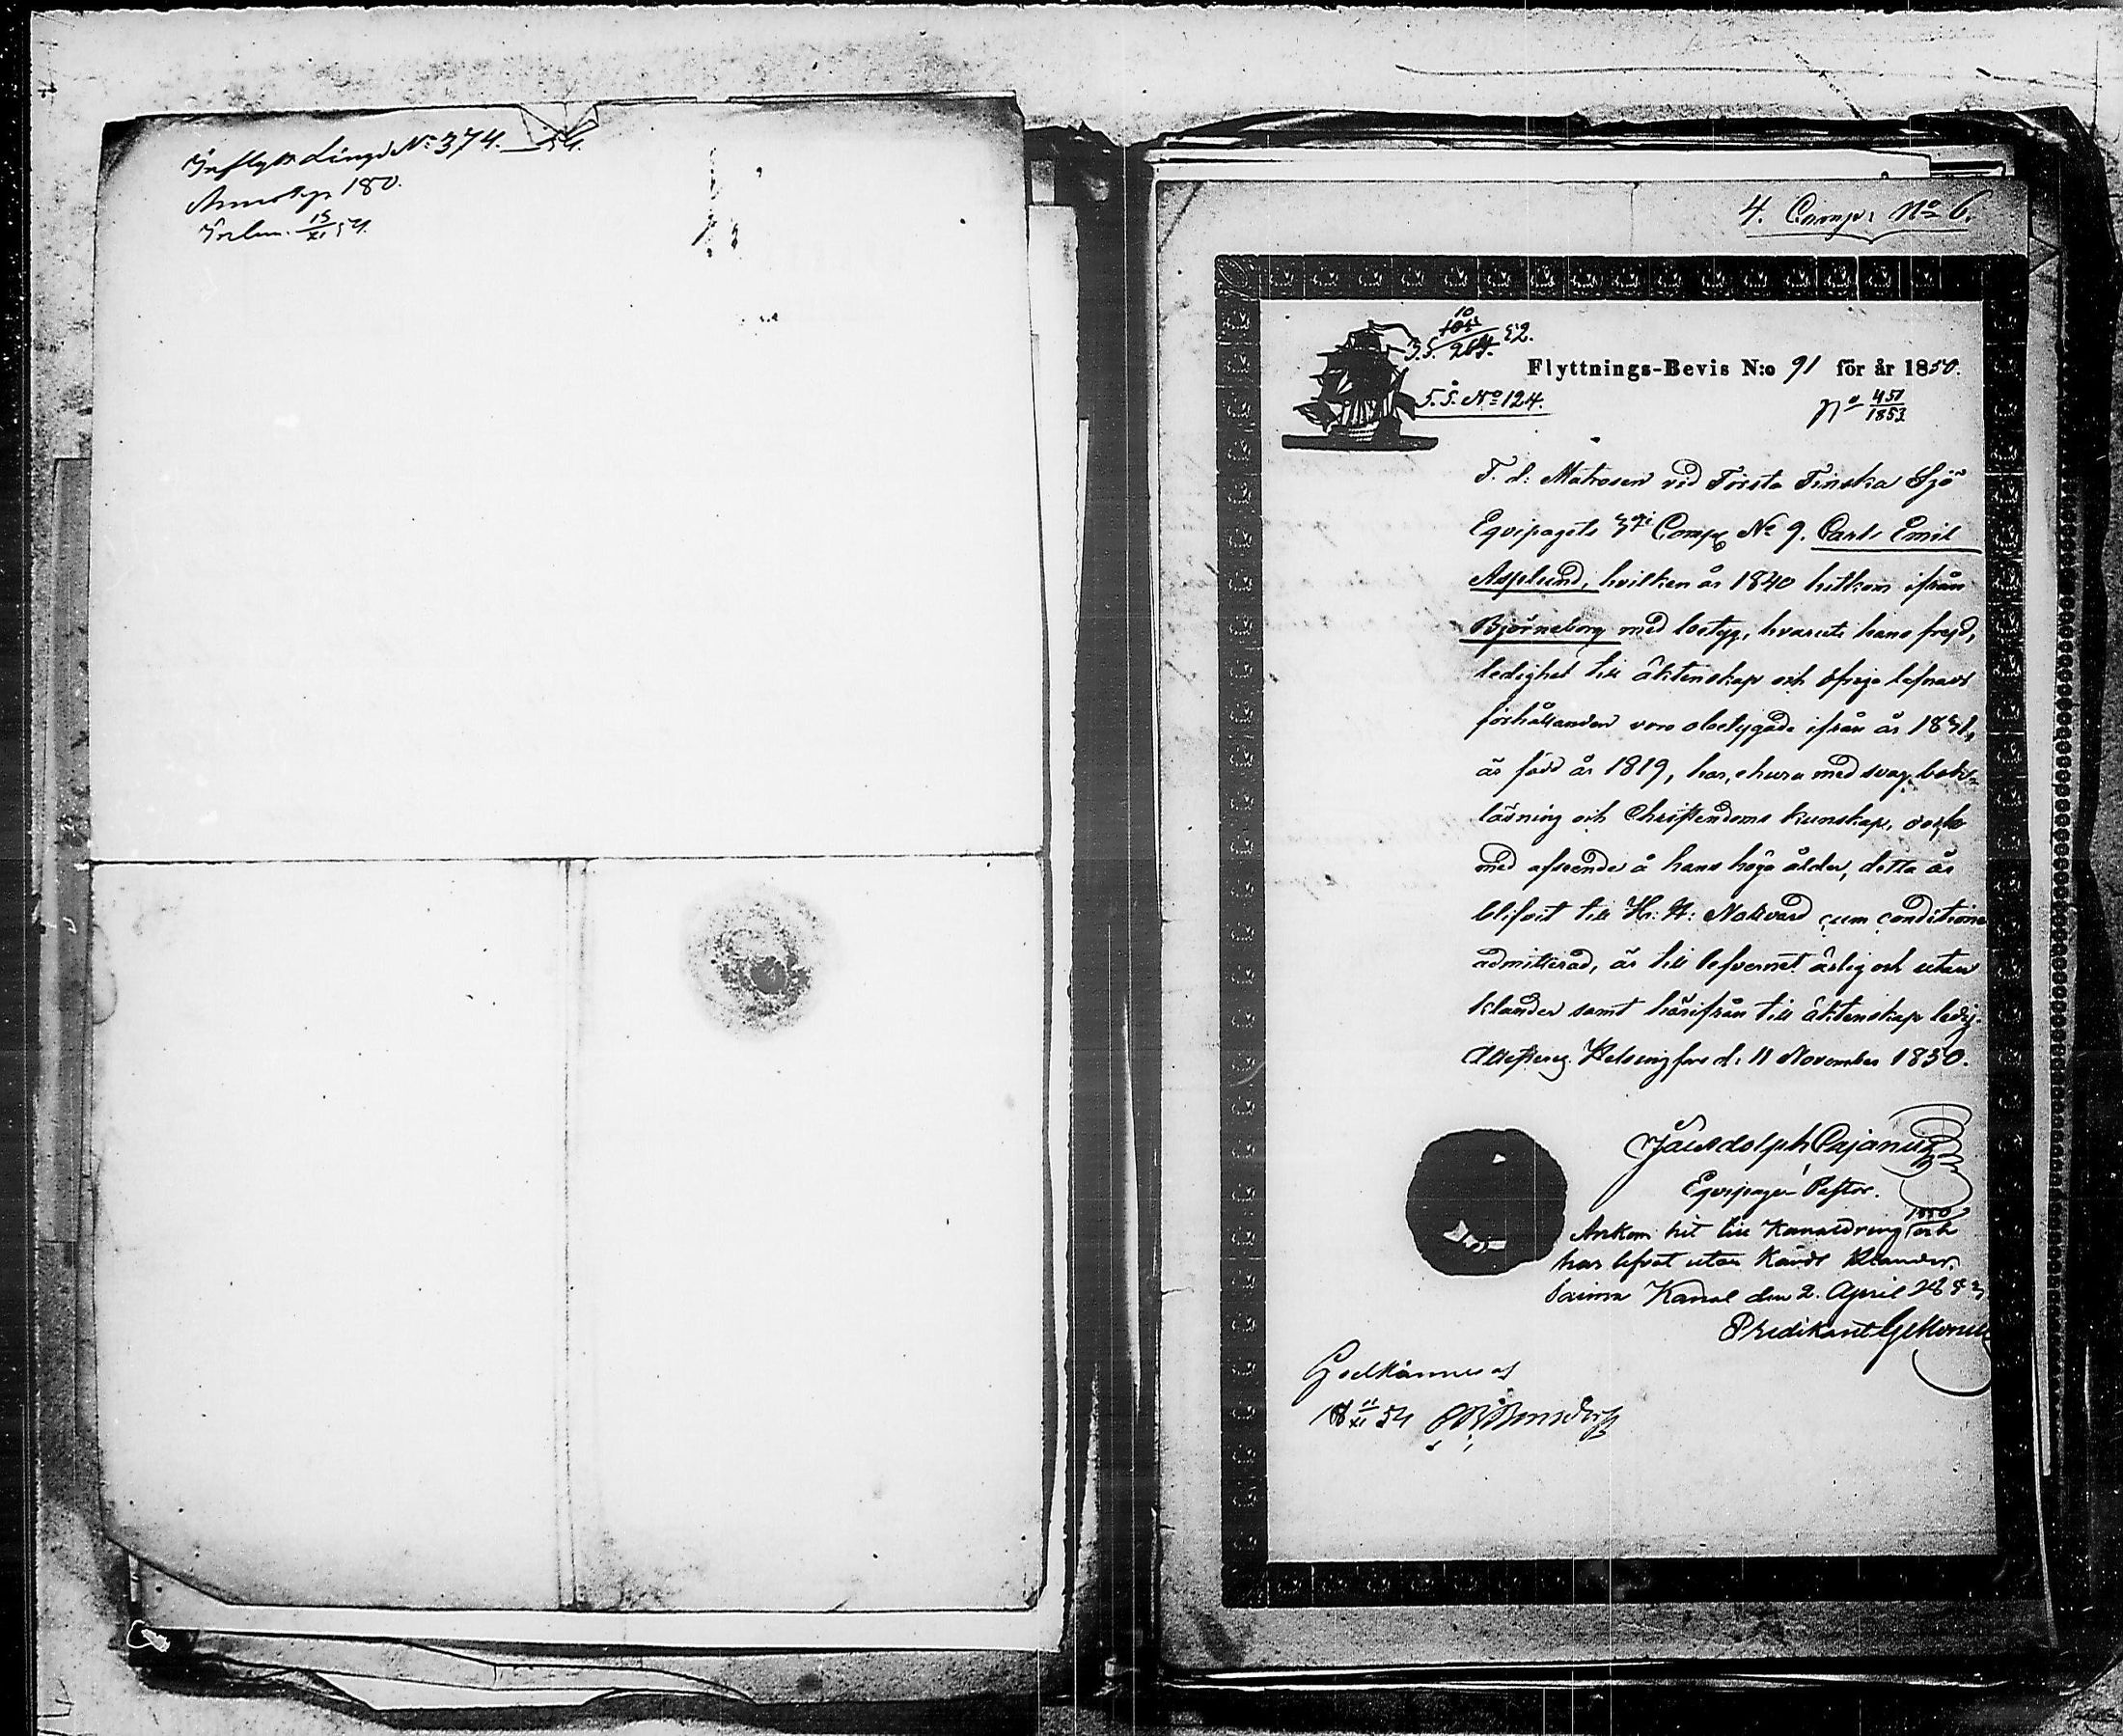 Inflytt. Längd No 374. 54.
180.
Inlem. 15/XI 54.
4. Comp: No 6.
10
S. 269. 52.
Flyttnings-Bevis N:o 91 för år 1850.
S. S. No 124.
No 451/1853
F. d. Matrosen vid Första Finska Sjö
Equipagets 3dje Comp No 9. Carl Emil
Asplund, hvilken år 1840 hitkom ifrån
Björneborg med betyg, hvaruti hans frejd,
ledighet till äktenskap och öfrige lefnads
förhållanden voro obetygade ifrån år 1831,
är född år 1819, har, ehuru med svag bok-
läsning och Christendoms kunskap, dock
med afseende å hans höga ålder, detta år
blifvit till H: H: Nattvard cum conditione
admitterad, är till lefvernet ärlig och utan
klander samt härifrån till äktenskap ledig.
Attesterar. Helsingfors d: 11 November 1850.
Adolph Cajanus
Equipage-Pastor.
Ankom hit till Kanaldrung 1850 och
har lefvat utan kändt klander.
Saima Kanal den 2. April 1853
Predikant
Godkännes af
18 11/XI 54